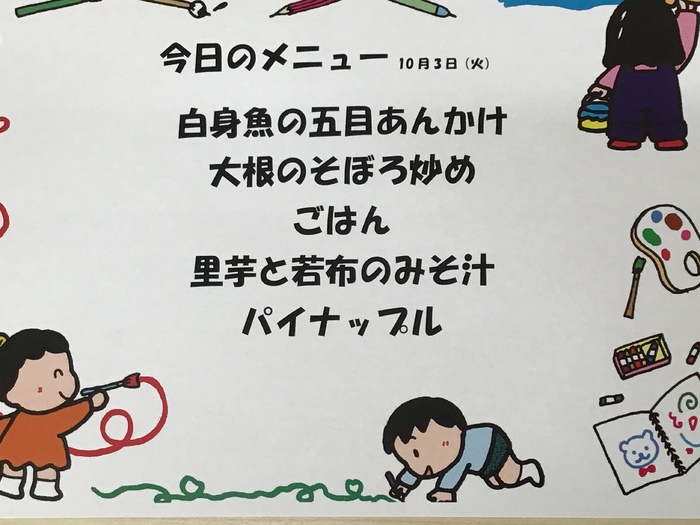 今日のメニュー 10月3日（火）
白身魚の五目あんかけ
大根のそぼろ炒め
ごはん
里芋と若布のみそ汁
パイナップル